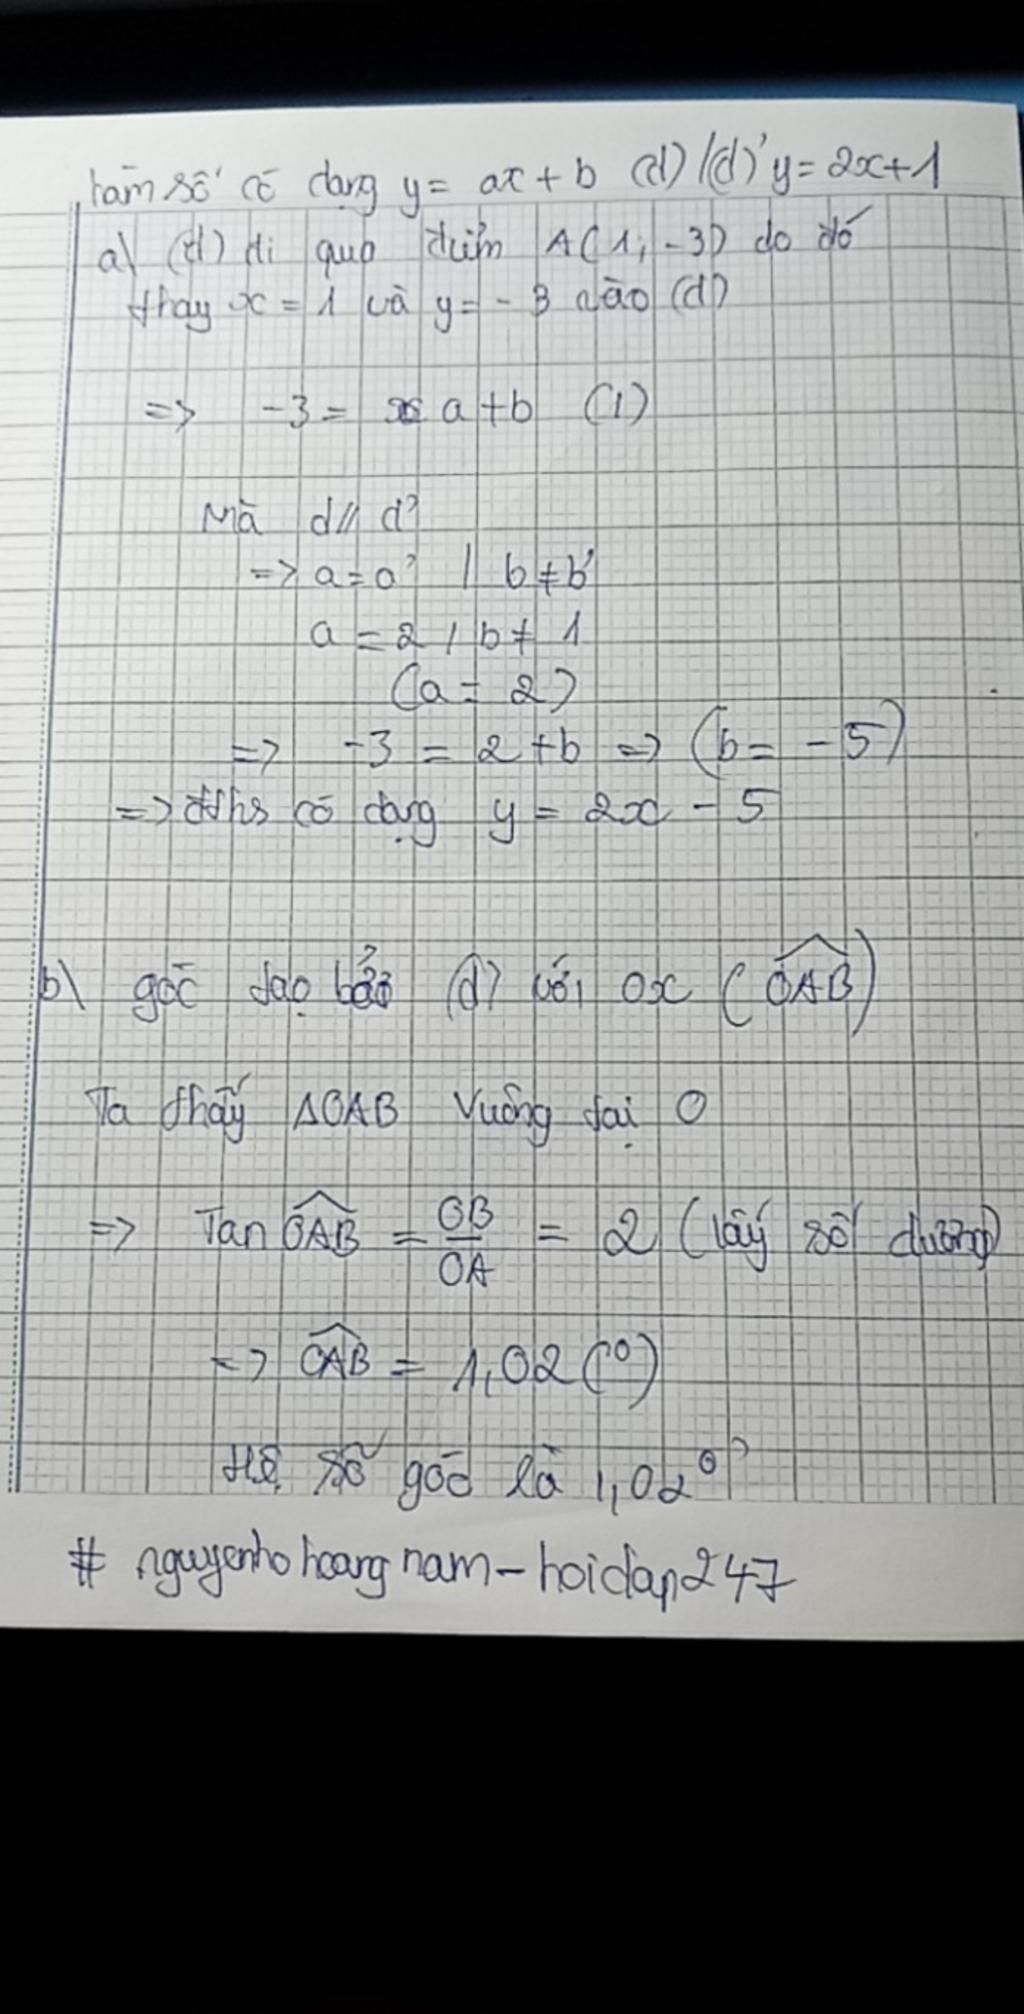 hàm số có dạng y = ax + b (d) / (d)' y = 2x+1
a) (d) đi qua điểm A(1; -3) do đó
thay x = 1 và y = -3 vào (d)
=> -3 = a + b (1)
Mà d // d'
=> a = a' / b ≠ b'
a = 2 / b ≠ 1
(a = 2)
=> -3 = 2 + b => (b = -5)
=> đths có dạng y = 2x - 5
b) góc tạo bởi (d) với Ox (OAB)
Ta thấy ΔOAB vuông tại O
=> Tan OAB = OB/OA = 2 (lấy số dương)
=> OAB = 1,02 (°)
Hệ số góc là 1,02°
# nguyenhohoangnam-hoidap247